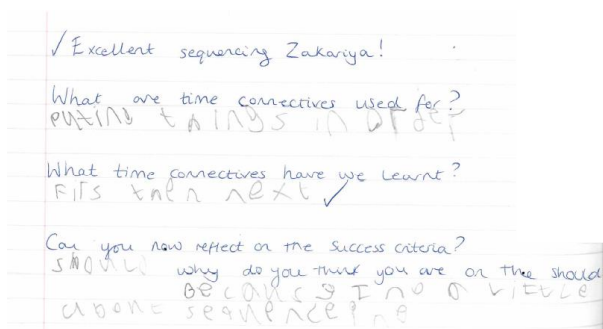 ✓ Excellent sequencing Zakariya!
What are time connectives used for?
puting things in order
What time connectives have we learnt?
Firs then next ✓
Can you now reflect on the success criteria?
should
why do you think you are on the should
Becaus I no a little
about sequence